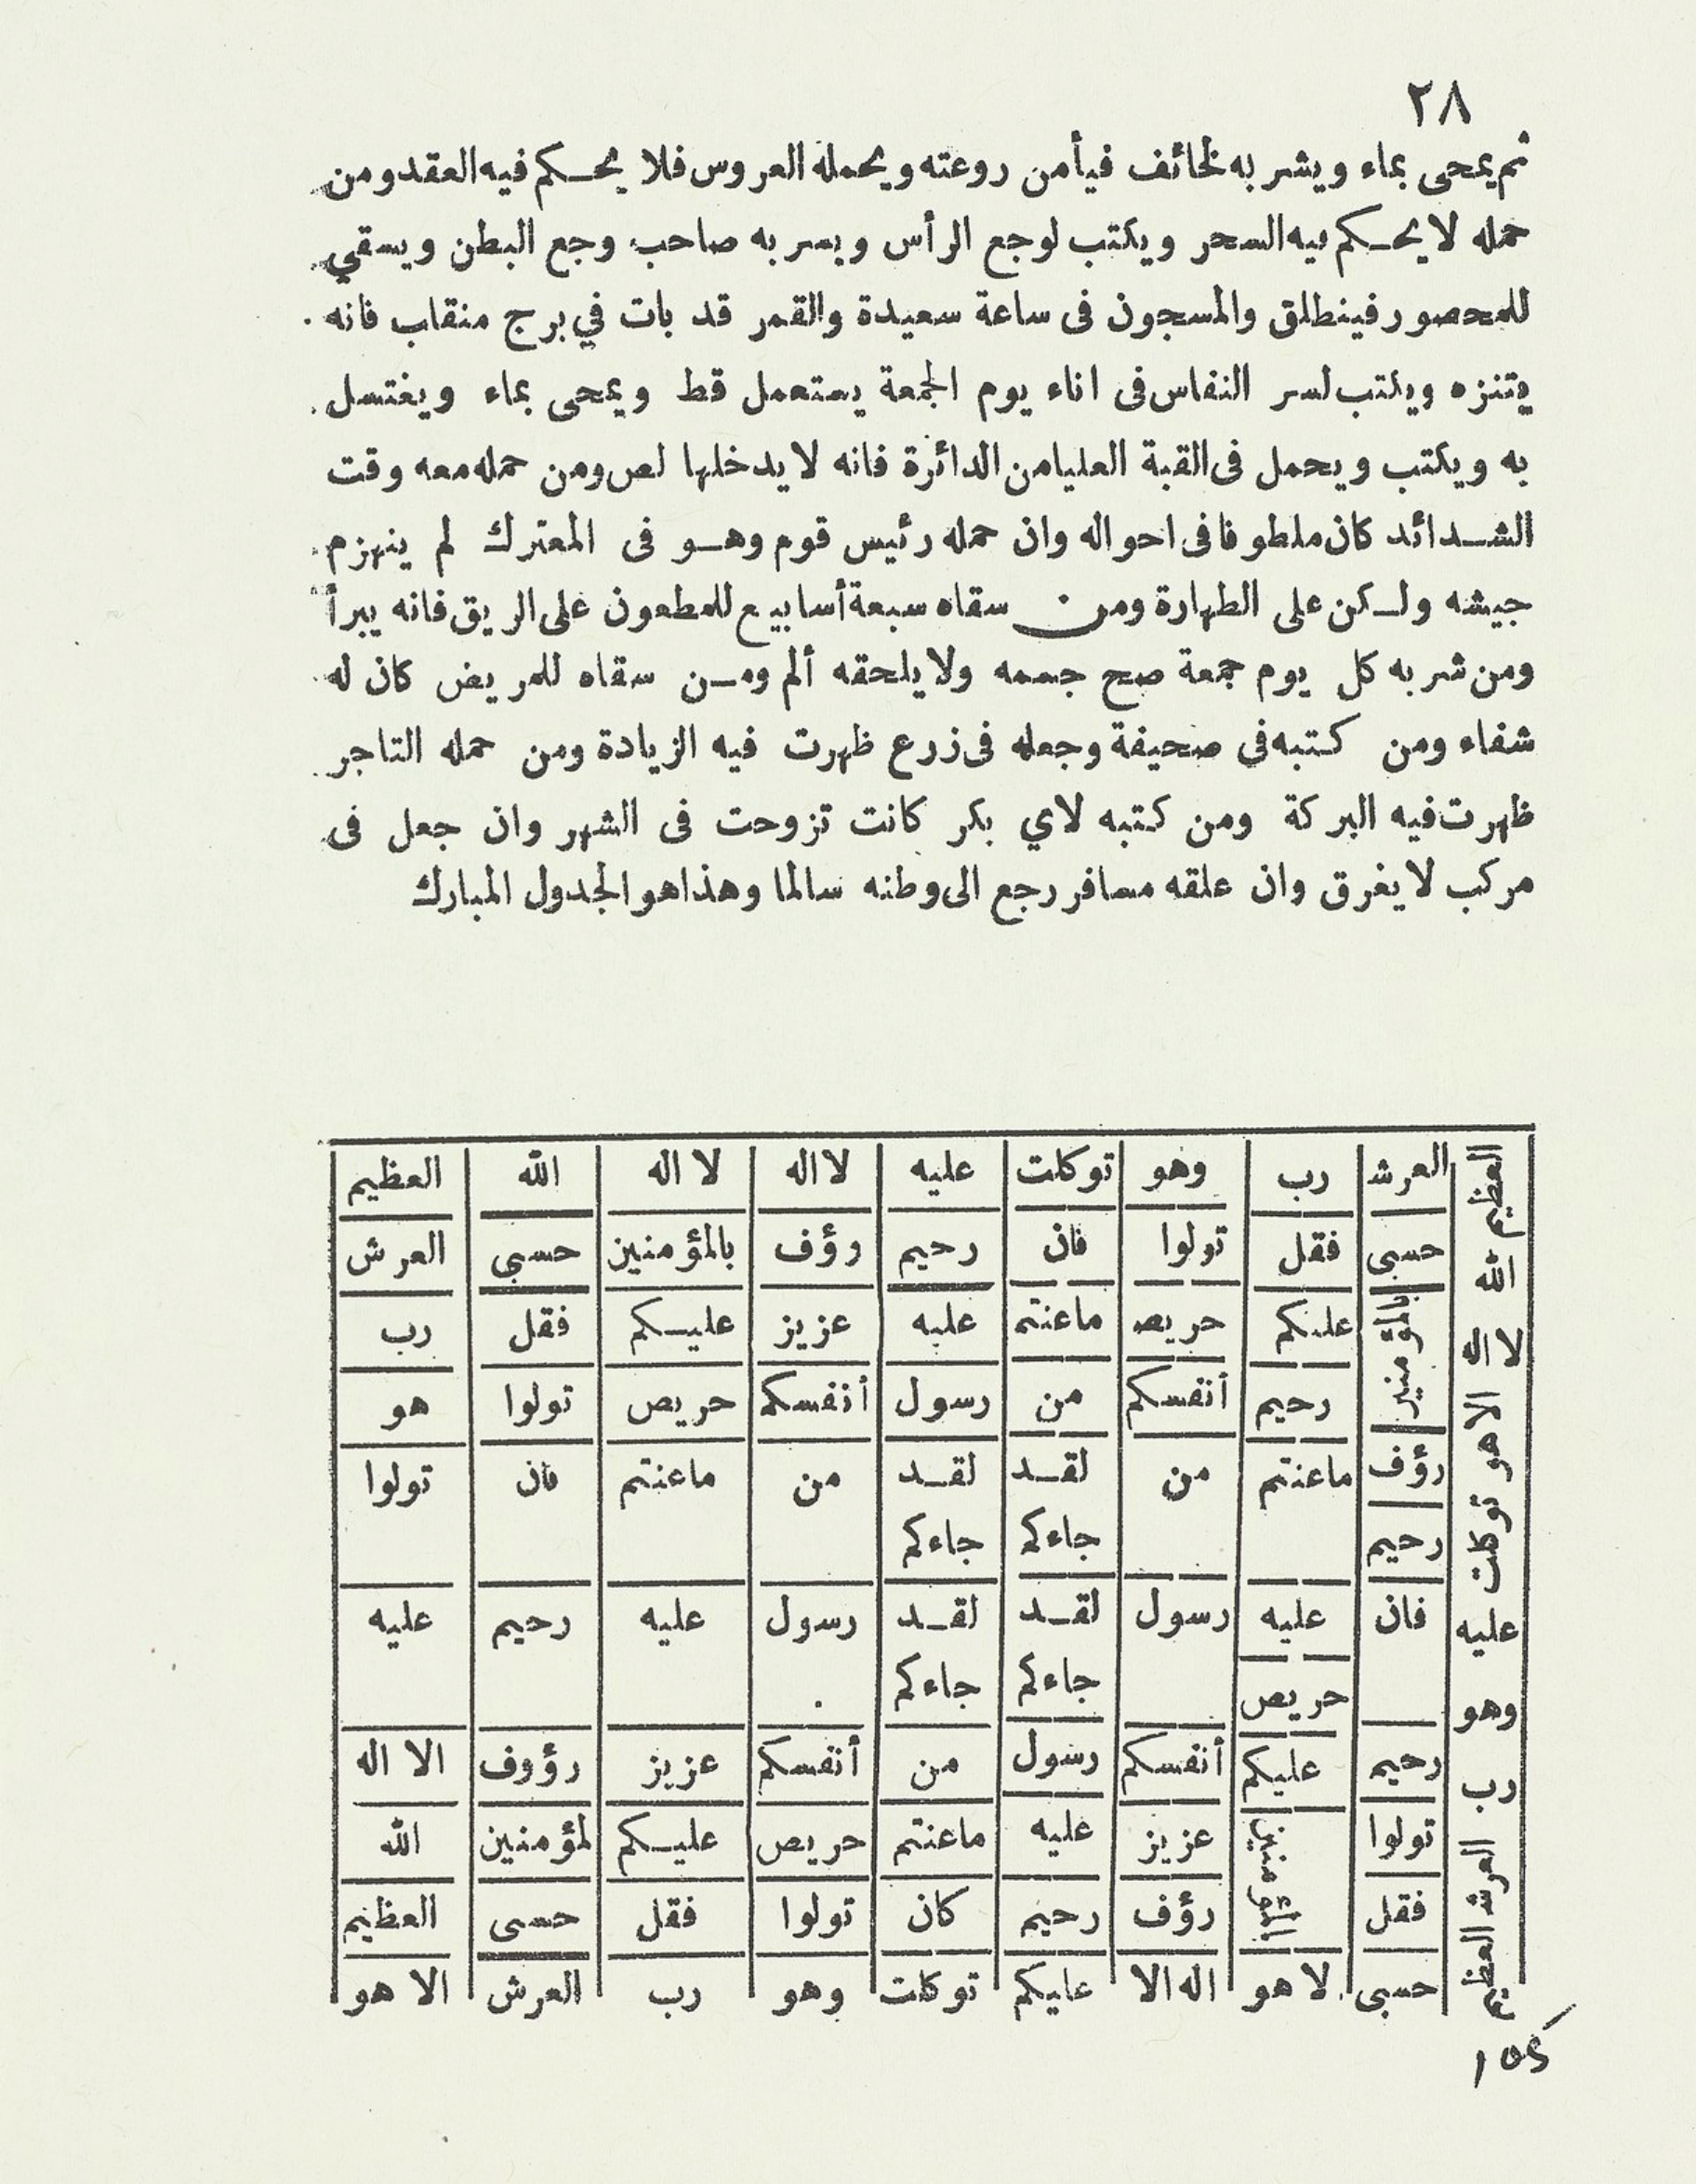 ٢٨
ثم يمحى بماء ويشربه لخائف فيأمن روعته ويحمله العروس فلا يحكم فيه العقد ومن
حمله لا يحكم فيه السحر ويكتب لوجع الرأس ويسربه صاحب وجع البطن ويسقي
للمحصور فينطلق والمسجون فى ساعة سعيدة والقمر قد بات في برج منقلب فانه
يتنزه ويكتب لسر النفاس فى اناء يوم الجمعة يستعمل قط ويمحى بماء ويغتسل
به ويكتب ويحمل فى القبة العليا من الدائرة فانه لا يدخلها لص ومن حمله معه وقت
الشدائد كان ملطوفا فى احواله وان حمله رئيس قوم وهو فى المعترك لم ينهزم
جيشه ولكن على الطهارة ومن سقاه سبعة أسابيع للمطعون على الريق فانه يبرأ
ومن شربه كل يوم جمعة صح جسمه ولا يلحقه ألم ومن سقاه للمريض كان له
شفاء ومن كتبه فى صحيفة وجعله فى زرع ظهرت فيه الزيادة ومن حمله التاجر
ظهرت فيه البركة ومن كتبه لاي بكر كانت تزوحت فى الشهر وان جعل فى
مركب لا يغرق وان علقه مسافر رجع الى وطنه سالما وهذا هو الجدول المبارك
العظيم الله لا اله الا هو توكلت عليه وهو رب العرش العظيم
العرش رب وهو توكلت عليه لا اله لا اله الله العظيم
حسبى فقل تولوا فان رحيم رؤف بالمؤمنين حسبي العرش
بالمؤمنين عليكم حريص ماعنتم عليه عزيز عليكم فقل رب
رحيم أنفسكم من رسول أنفسكم حريص تولوا هو
رؤف ماعنتم من لقد لقد من ماعنتم فان تولوا
رحيم جاءكم جاءكم
فان عليه رسول لقد لقد رسول عليه رحيم عليه
حريص جاءكم جاءكم
رحيم عليكم أنفسكم رسول من أنفسكم عزيز رؤوف الا اله
تولوا المؤمنين عزيز عليه ماعنتم حريص عليكم لمؤمنين الله
فقل رؤف رحيم كان تولوا فقل حسبى العظيم
حسبى لا هو اله الا عليكم توكلت وهو رب العرش الا هو